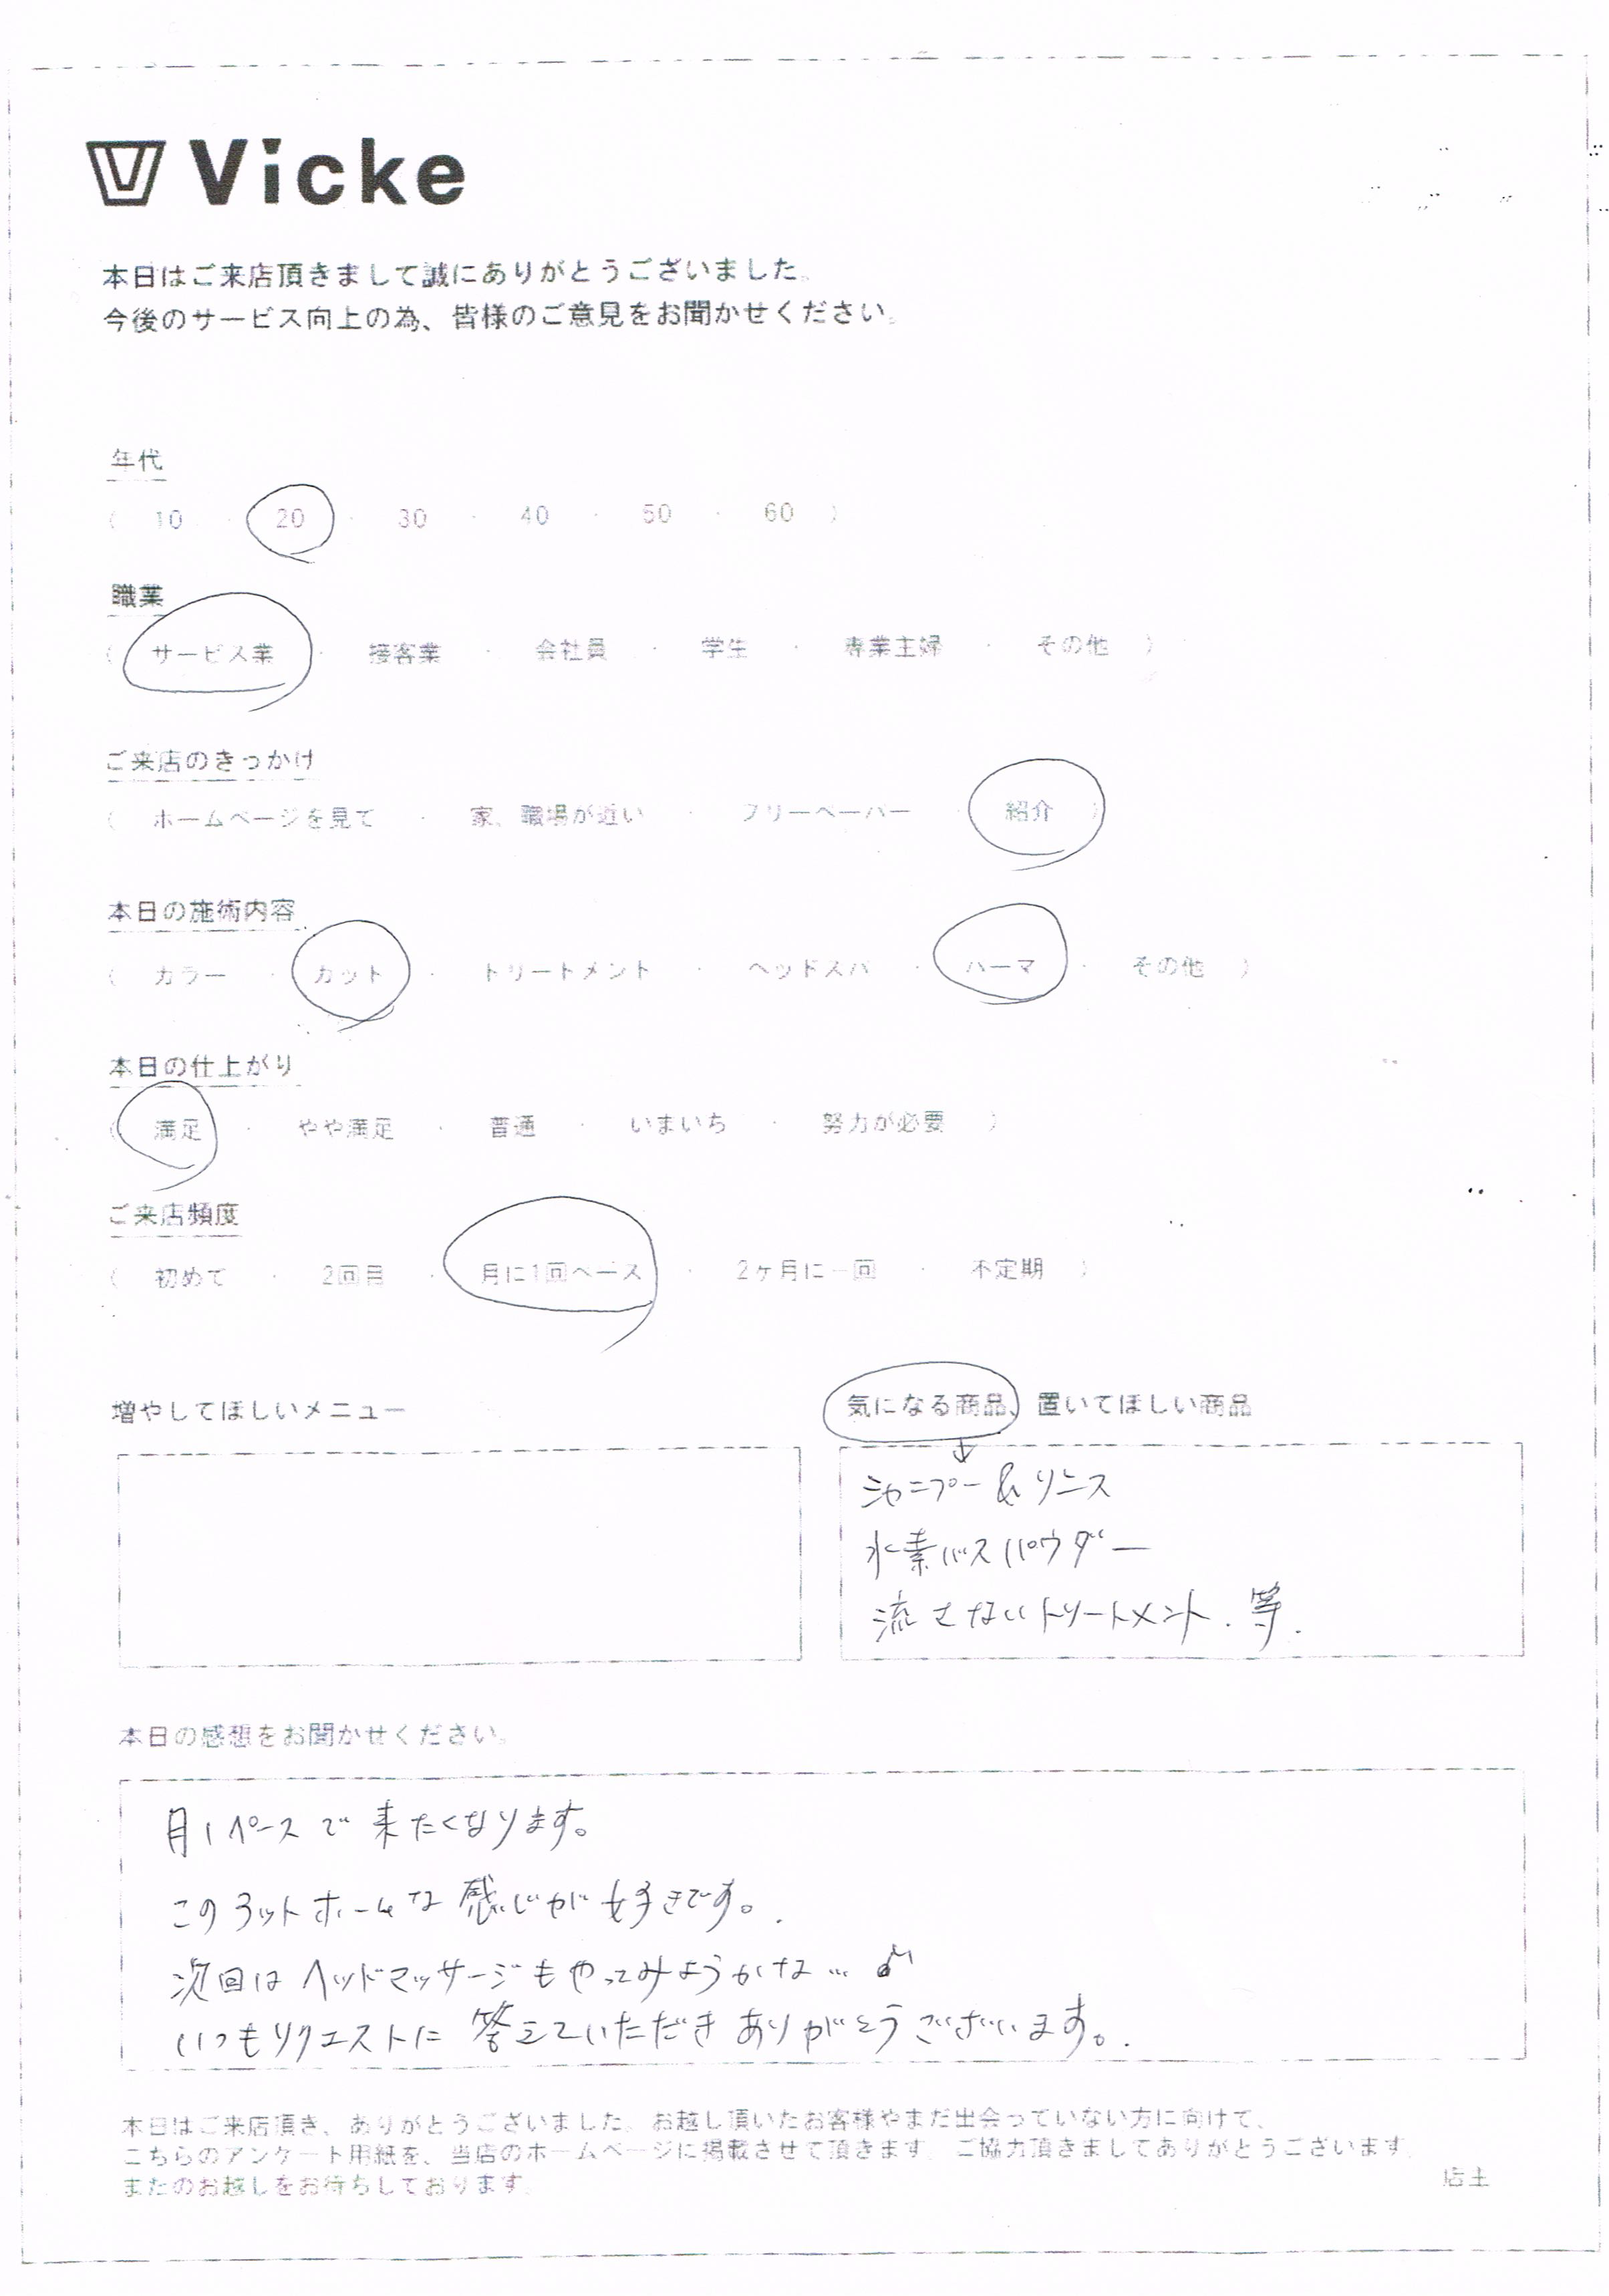 Vicke
本日はご来店頂きまして誠にありがとうございました。
今後のサービス向上の為、皆様のご意見をお聞かせください。
年代
( 10 · 20 · 30 · 40 · 50 · 60 )
職業
( サービス業 · 接客業 · 会社員 · 学生 · 専業主婦 · その他 )
ご来店のきっかけ
( ホームページを見て · 家、職場が近い · フリーペーパー · 紹介 )
本日の施術内容
( カラー · カット · トリートメント · ヘッドスパ · パーマ · その他 )
本日の仕上がり
( 満足 · やや満足 · 普通 · いまいち · 努力が必要 )
ご来店頻度
( 初めて · 2回目 · 月に1回ペース · 2ヶ月に一回 · 不定期 )
増やしてほしいメニュー
気になる商品、置いてほしい商品
↓
シャンプー & リンス
水素バスパウダー
流さないトリートメント. 等.
本日の感想をお聞かせください。
月1ペースで来たくなります。
このアットホームな感じが好きです。.
次回はヘッドマッサージもやってみようかな…♫
いつもリクエストに答えていただきありがとうございます。.
本日はご来店頂き、ありがとうございました。お越し頂いたお客様やまだ出会っていない方に向けて、
こちらのアンケート用紙を、当店のホームページに掲載させて頂きます。ご協力頂きましてありがとうございます。
またのお越しをお待ちしております。
店主